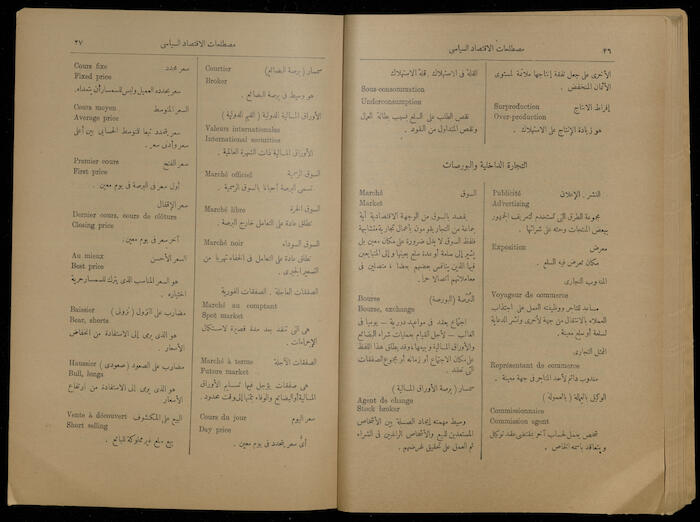 ٤٦
مصطلحات الاقتصاد السياسى
الأخرى على جعل نفقة إنتاجها ملائمة لمستوى
الأثمان المنخفض .
Surproduction
إفراط الانتاج
Over-production
هو زيادة الإنتاج على الاستهلاك .
القلة فى الاستهلاك . قلة الاستهلاك
Sous-consommation
Underconsumption
نقص الطلب على السلع بسبب بطالة العمال
ونقص المتداول من النقود .
التجارة الداخلية والبورصات
Publicité
النشر . الإعلان
Advertising
مجموعة الطرق التى تستخدم لتعريف الجمهور
ببعض المنتجات وحثه على شرائها .
Exposition
معرض
مكان تعرض فيه السلع .
المندوب التجارى
Voyageur de commerce
مساعد للتاجر ووظيفته العمل على اجتذاب
العملاء بالانتقال من جهة لأخرى ونشر الدعاية
لسلعة أو سلع معينة .
الممثل التجارى
Représentant de commerce
مندوب دائم لأحد المتاجر فى جهة معينة .
الوكيل بالعمالة ( بالعمولة )
Commissionnaire
Commission agent
شخص يعمل لحساب آخر بمقتضى عقد توكيل
ويتعاقد باسمه الخاص .
Marché
السوق
Market
يقصد بالسوق من الوجهة الاقتصادية أية
جماعة من التجار يقومون بأعمال تجارية متشابهة
فلفظ السوق لا يدل ضرورة على مكان معين بل
يشير إلى سلعة أو عدة سلع بعينها وإلى المتبايعين
فيها الذين ينافس بعضهم بعضا متصلين فى
معاملاتهم اتصالا حرا .
Bourse
البُرصة (البورصة)
Bourse, exchange
اجتماع يعقد فى مواعيد دورية — يوميا فى
الغالب — لأجل القيام بعمليات شراء البضائع
والأوراق المالية وبيعها، وقد يطلق هذا اللفظ
على مكان الاجتماع أو زمانه أو مجموع الصفقات
التى تعقد .
سمسار ( برصة الأوراق المالية )
Agent de change
Stock broker
وسيط مهمته إيجاد الصلة بين الأشخاص
المستعدين للبيع والأشخاص الراغبين فى الشراء
ثم العمل على تحقيق غرضهم .
٢٧
مصطلحات الاقتصاد السياسى
Courtier
سمسار ( برصة البضائع )
Broker
هو وسيط فى برصة البضائع .
الأوراق المالية الدولية ( القيم الدولية )
Valeurs internationales
International securities
الأوراق المالية ذات الشهرة العالمية .
Marché officiel
السوق الرسمية
تسمى البرصة أحيانا بالسوق الرسمية .
Marché libre
السوق الحرة
تطلق عادة على التعامل خارج البرصة .
Marché noir
السوق السوداء
تطلق عادة على التعامل فى الخفاء تهربا من
التسعير الجبرى .
الصفقات العاجلة . الصفقات الفورية
Marché au comptant
Spot market
هى التى تنفذ بعد مدة قصيرة لاستكمال
الإجراءات .
Marché à terme
الصفقات الآجلة
Future market
هى صفقات يؤجل فيها تسليم الأوراق
المالية أو البضائع والوفاء بثمنها إلى وقت محدود .
Cours du jour
سعر اليوم
Day price
أىّ سعر يتحدد فى يوم معين .
Cours fixe
سعر محدد
Fixed price
سعر يحدده العميل وليس للسمسار أن يتعداه .
Cours moyen
السعر المتوسط
Average price
سعر يتحدد تبعا للتوسط الحسابى بين أعلى
سعر وأدنى سعر .
Premier cours
سعر الفتح
First price
أول سعر فى البرصة فى يوم معين .
سعر الإقفال
Dernier cours, cours de clôture
Closing price
آخر سعر فى يوم معين .
Au mieux
السعر الأحسن
Best price
هو السعر المناسب الذى يترك للسمسار حرية
اختياره .
Baissier
مضارب على النزول ( نزولى )
Bear, shorts
هو الذى يرمى إلى الاستفادة من انخفاض
الأسعار .
Haussier
مضارب على الصعود ( صعودى )
Bull, longs
هو الذى يرمى إلى الاستفادة من ارتفاع
الأسعار .
Vente à découvert
البيع على المكشوف
Short selling
بيع سلع غير مملوكة للبائع .